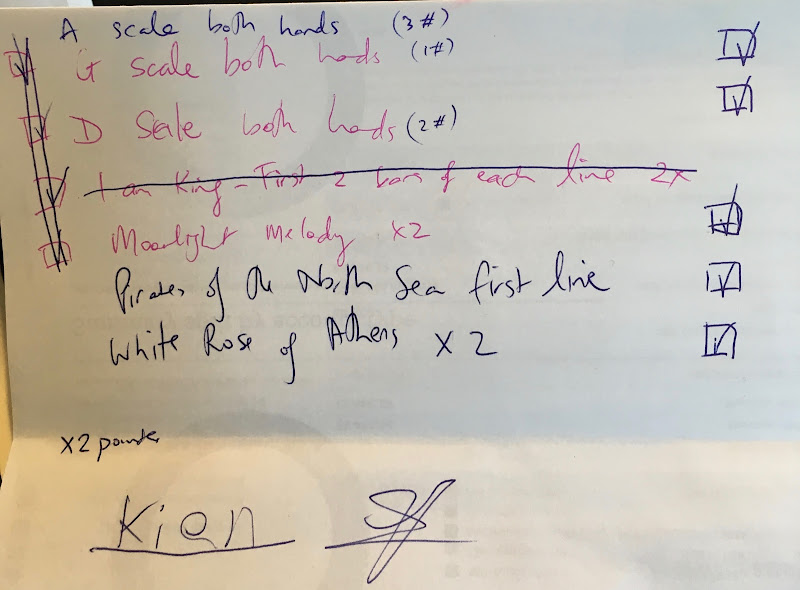 A scale both hands (3#)
G scale both hands (1#)
D Scale both hands (2#)
I am King - First 2 bars of each line 2x
Moonlight Melody x2
Pirates of the North Sea first line
White Rose of Athens x 2
x2
Kian